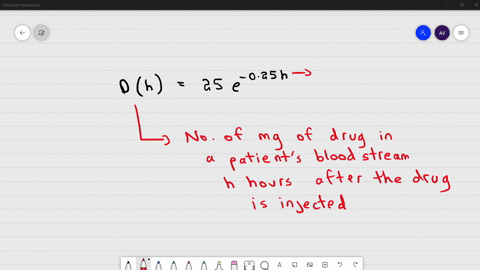 D(h) = 25 e^-0.25h →
No. of mg of drug in
a patient's blood stream
h hours after the drug
is injected
AV